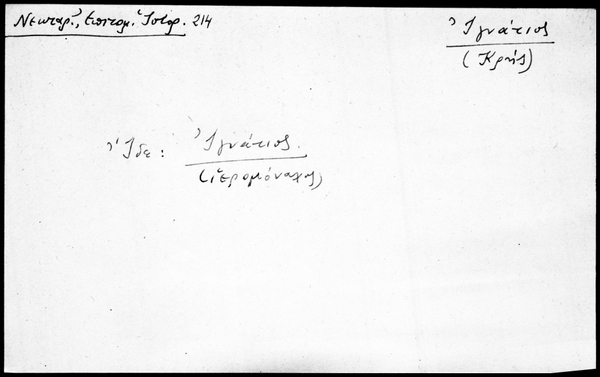 Νεωταρ., Ἐπιτομ. Ἱστορ. 214
Ἰγνάτιος
(Κρής)
Ἴδε: Ἰγνάτιος.
(ἱερομόναχος)